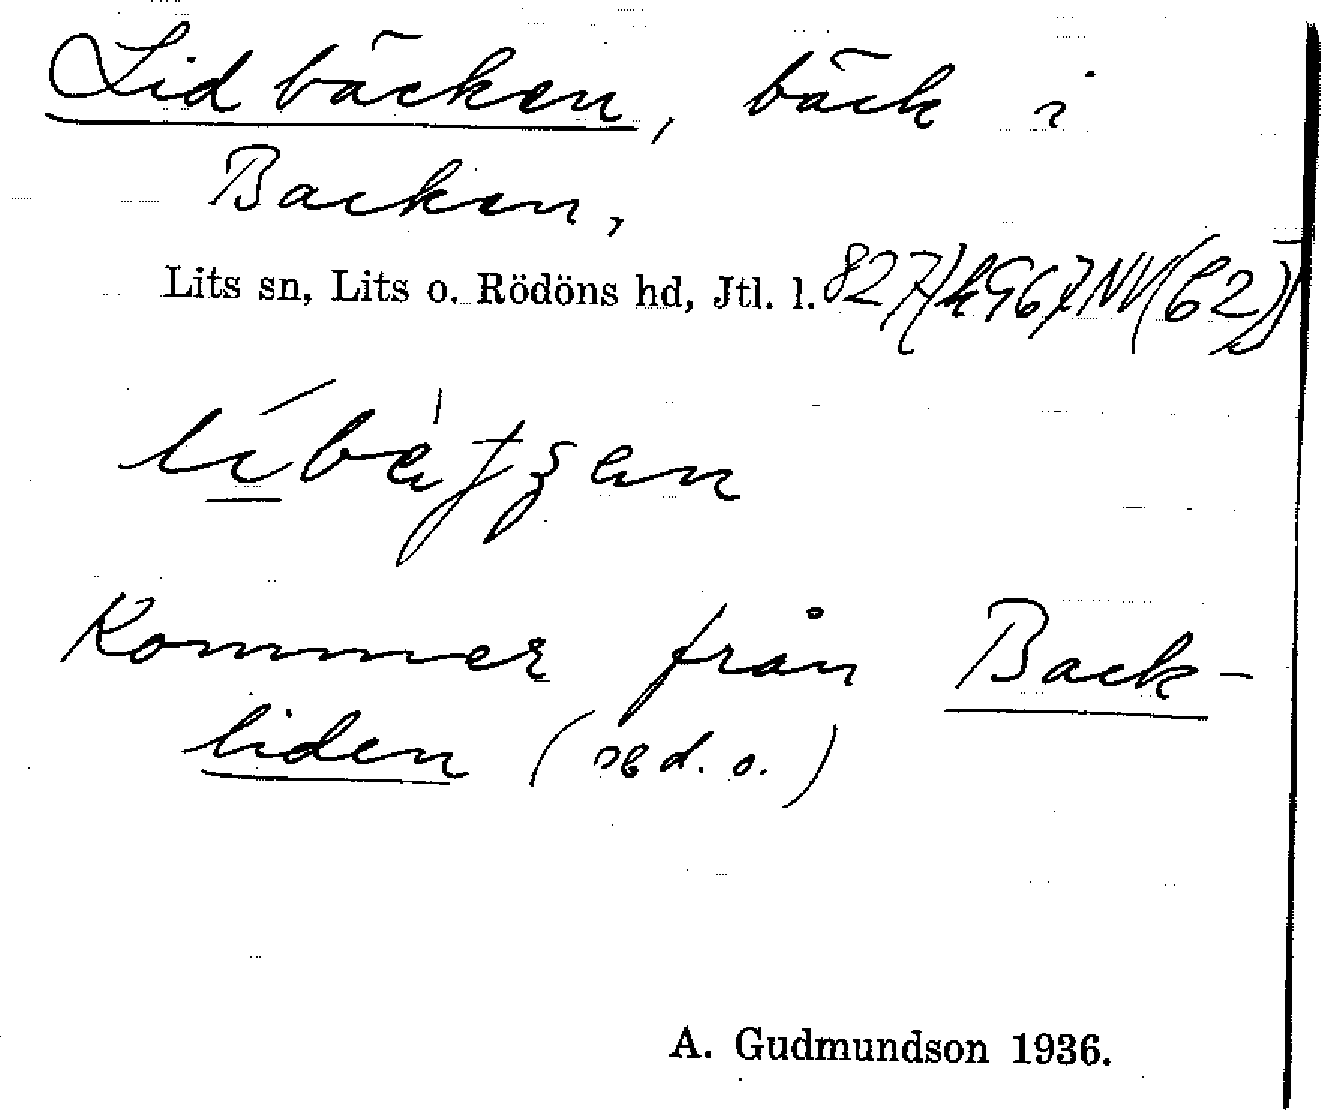 Lidbäcken, bäck i
Backen,
Lits sn, Lits o. Rödöns hd, Jtl. l.
Kommer från Back-
liden (se d. o.)
A. Gudmundson 1936.